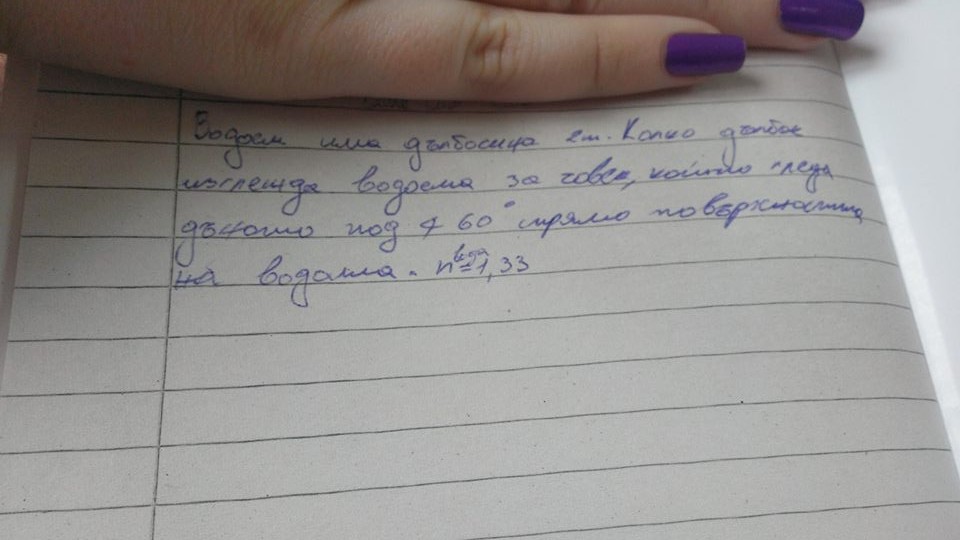 Водоем има дълбочина 2m. Колко дълбок
изглежда водоема за човек, който гледа
дъното под ∢ 60° спрямо повърхността
на водоема. n вода = 1,33